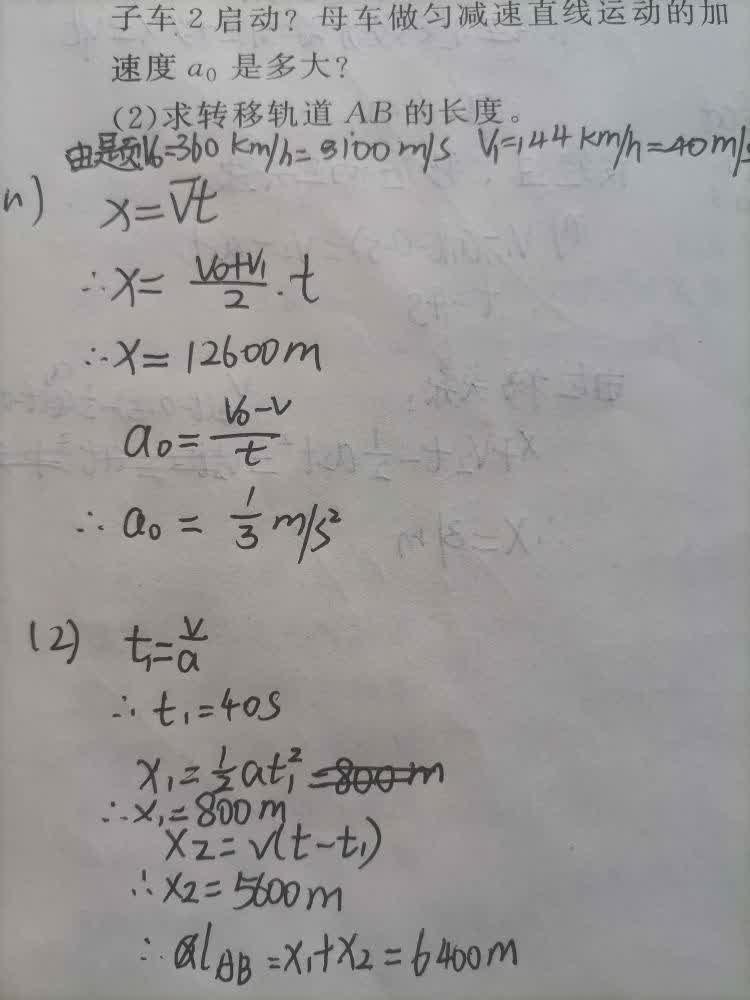 子车2启动？母车做匀减速直线运动的加
速度a₀是多大？
(2)求转移轨道AB的长度。
由题V₀=360 km/h=100m/s V₁=144km/h=40m/s
(1) x=v̄t
∴x=(v₀+v₁)/2·t
∴x=12600m
a₀=(v₀-v)/t
∴a₀=1/3 m/s²
(2) t₁=v/a
∴t₁=40s
x₁=1/2at₁²
∴x₁=800m
x₂=v(t-t₁)
∴x₂=5600m
∴l_AB=x₁+x₂=6400m